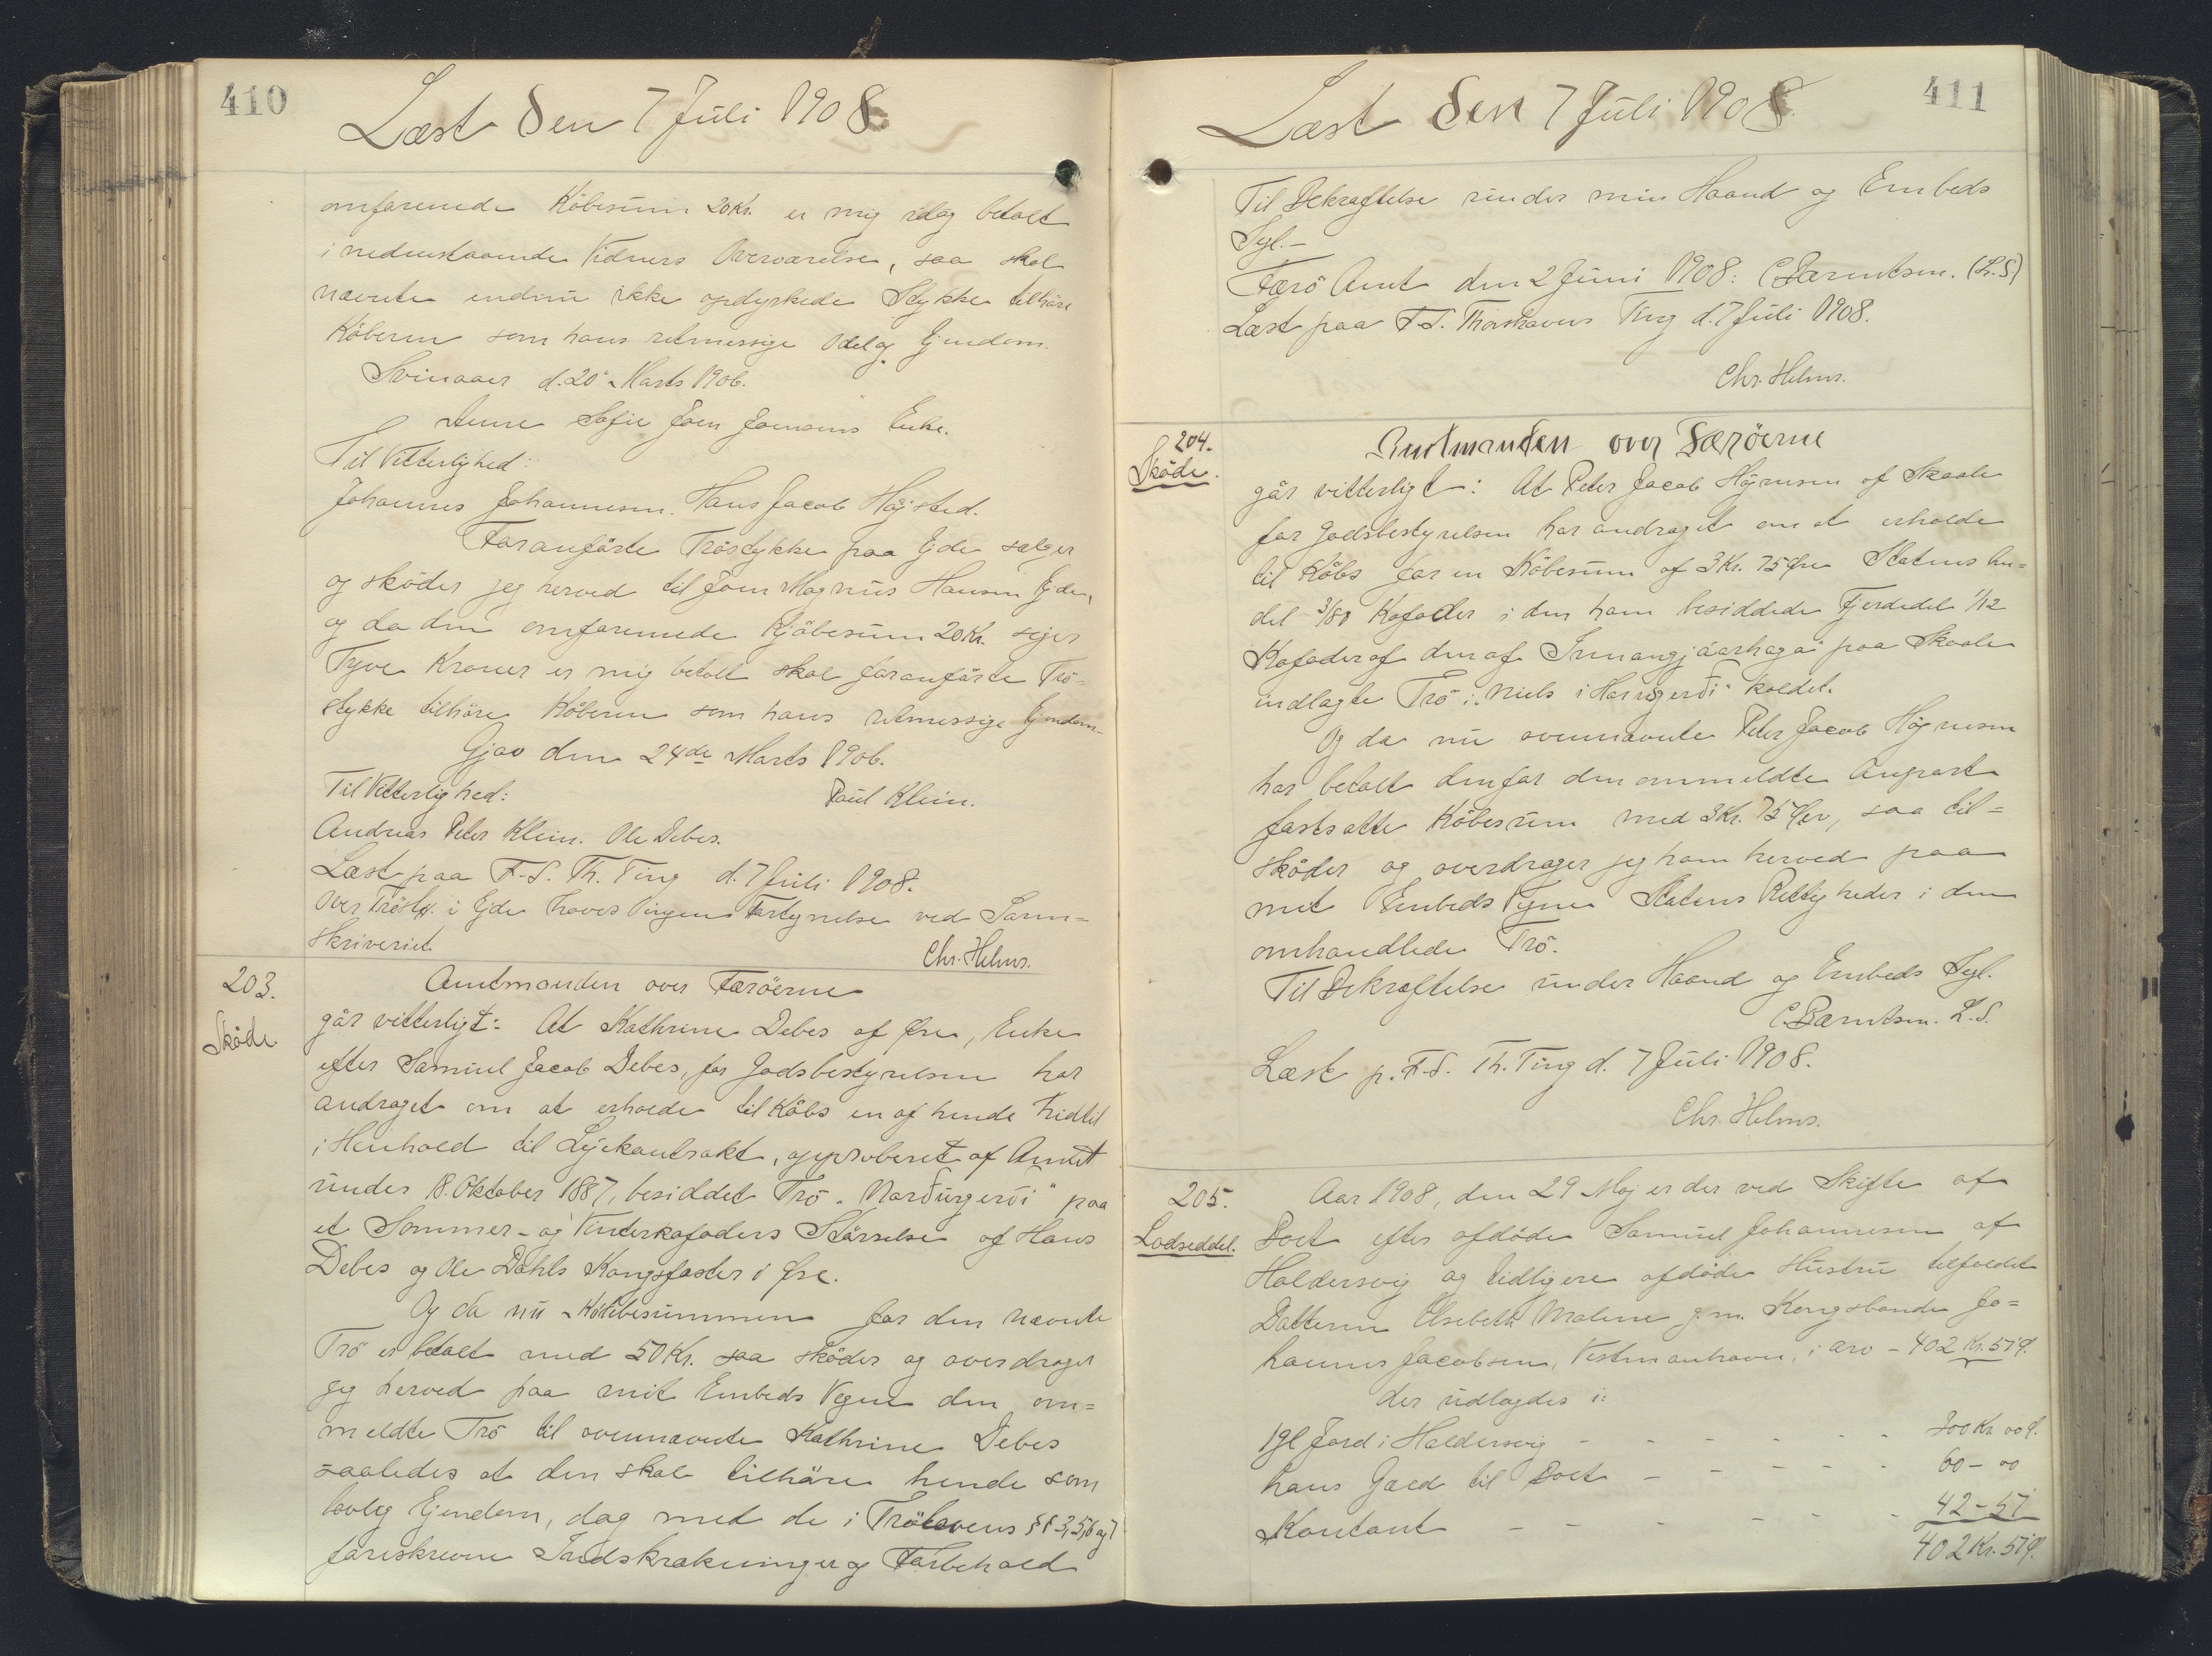 410
Læst den 7 Juli 1908
omforenede Köbesum 20 Kr. er mig idag betalt
i nedenstaaende Vidners Overværelse, saa skal
nævnte endnu ikke opdyrkede Stykke tilhöre
Köberen som hans retmæssige Odel og Ejendom.
Svinaaer d. 20 Marts 1906.
Anne Sofie Joen Joensens Enke.
Til Vitterlighed:
Johannes Johannesen. Hans Jacob Højsted.
Foranförte Tröstykke paa Ejde sælger
og sköder jeg herved til Joen Magnus Hansen Ejde,
og da den omforenede Kjöbesum 20 Kr. siger
Tyve Kroner er mig betalt skal foranförte Trö-
stykke tilhöre Köberen som hans retmæssige Ejendom.
Gjov den 24de Marts 1906.
Til Vitterlighed: Poul Klein.
Andreas Peter Klein. Ole Debes.
Læst paa F. S. Th. Ting d. 7 Juli 1908.
Over Tröstk. i Ejde haves ingen Fortegnelse ved Soren-
skriveriet.
Chr. Helms.
203.
Sköde
Amtmanden over Færöerne
gör vitterligt: At Kathrine Debes af Öre, Enke
efter Samuel Jacob Debes, for Jordsbestyrelsen har
andraget om at erholde til Köbs en af hende hidtil
i Henhold til Lejekontrakt, approberet af Amtet
under 18. Oktober 1887, besiddet Trö "Norðurgerði" paa
et Sommer- og Vinterkofoders Störrelse af Hans
Debes og Ole Dahls Kongsfæster i Öre.
Og da nu Köbesummen for den nævnte
Trö er betalt med 50 Kr. saa sköder og overdrager
jeg herved paa mit Embeds Vegne den om-
meldte Trö til ovennævnte Kathrine Debes
saaledes at den skal tilhöre hende som
lovlig Ejendom, dog med de i Trölovens §§ 3, 5, 6 og 7
foreskrevne Indskrænkninger og Forbehold
411
Læst den 7 Juli 1908.
Til Bekræftelse under min Haand og Embeds
Segl.-
Færö Amt den 2 Juni 1908: C. Bærentsen. (L.S.)
Læst paa F. S. Thorshavns Ting d. 7 Juli 1908.
Chr. Helms.
204.
Sköde.
Amtmanden over Færöerne
gör vitterligt: At Peter Jacob Högnesen af Skaale
for Jordsbestyrelsen har andraget om at erholde
til Köbs for en Köbesum af 3 Kr. 75 Öre Statens An-
del 3/80 Kofoder i den ham besiddede Fjerdedel 1/12
Kofoder af den af Innangjáarhaga paa Skaale
indlagte Trö "Niels i Horngerði" kaldet.
Og da nu ovennævnte Peter Jacob Högnesen
har betalt den for den ommeldte Anpart
fastsatte Köbesum med 3 Kr. 75 Öre, saa til-
sköder og overdrager jeg ham herved paa
mit Embeds Vegne Statens Rettigheder i den
omhandlede Trö.
Til Bekræftelse under Haand og Embeds Segl.
C. Bærentsen. L. S.
Læst p. F. S. Th. Ting d. 7 Juli 1908.
Chr. Helms.
205.
Lodseddel.
Aar 1908, den 29 Maj er der ved Skifte af
Boet efter afdöde Samuel Johannesen af
Haldersvig og tidligere afdöde Hustru tilfaldet
Datteren Elsebeth Malene g. m. Kongsbonde Jo-
hannes Jacobsen, Vestmanhavn, i arv - 402 Kr. 57 Ø.
der udlagdes i:
1 gl Jord i Haldersvig - - - - - - 300 Kr 00 Ø.
hans Gæld til Boet - - - - - 60 - 00
Kontant - - - - - - 42 - 57
402 Kr. 57 Ø.